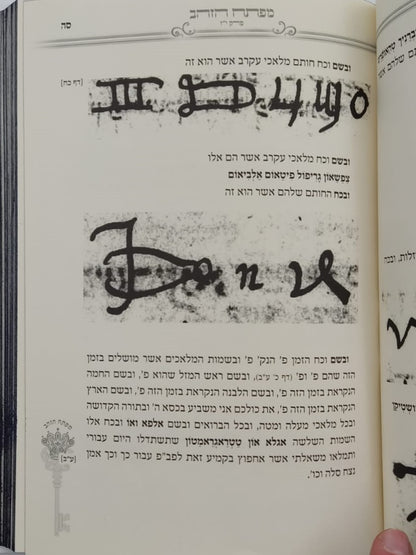 מפתח הזהב
פרק י"ז
סה
ובשם וכח חותם מלאכי עקרב אשר הוא זה
[דף כח]
ובשם וכח מלאכי עקרב אשר הם אלו
ובכח החותם שלהם אשר הוא זה
ובשם וכח הזמן פ' הנק' פ' ובשמות המלאכים אשר מושלים בזמן
הזה שהם פ' ופ' (דף כ' ע"ב), ובשם ראש המזל שהוא פ', ובשם החמה
הנקראת בזמן הזה פ', ובשם הלבנה הנקראת בזמן הזה פ', ובשם הארץ
הנקראת בזמן הזה פ', את כולכם אני משביע בכסא ה' ובתורה הקדושה
ובכל מלאכי מעלה ומטה, ובכל הברואים ובשם אלפא ואו ובכח אלו
השמות השלשה אגלא און טטראגרמטון שתשתדלו היום עבורי
ותמלאו משאלתי אשר אחפוץ בקמיע זאת לפב"פ עבור כך וכך אמן
נצח סלה וכו'.
מפתח הזהב
[ע"ב]